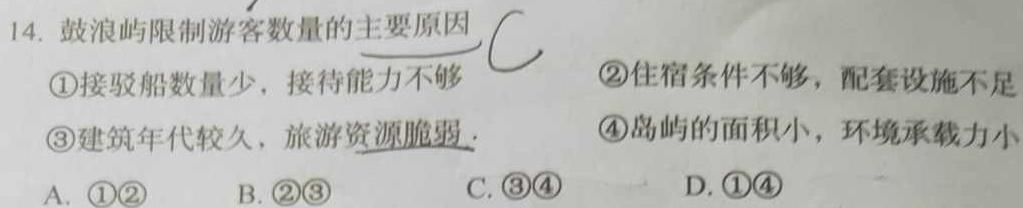 14. 鼓浪屿限制游客数量的主要原因 C
①接驳船数量少，接待能力不够 ②住宿条件不够，配套设施不足
③建筑年代较久，旅游资源脆弱. ④岛屿的面积小，环境承载力小
A. ①② B. ②③ C. ③④ D. ①④